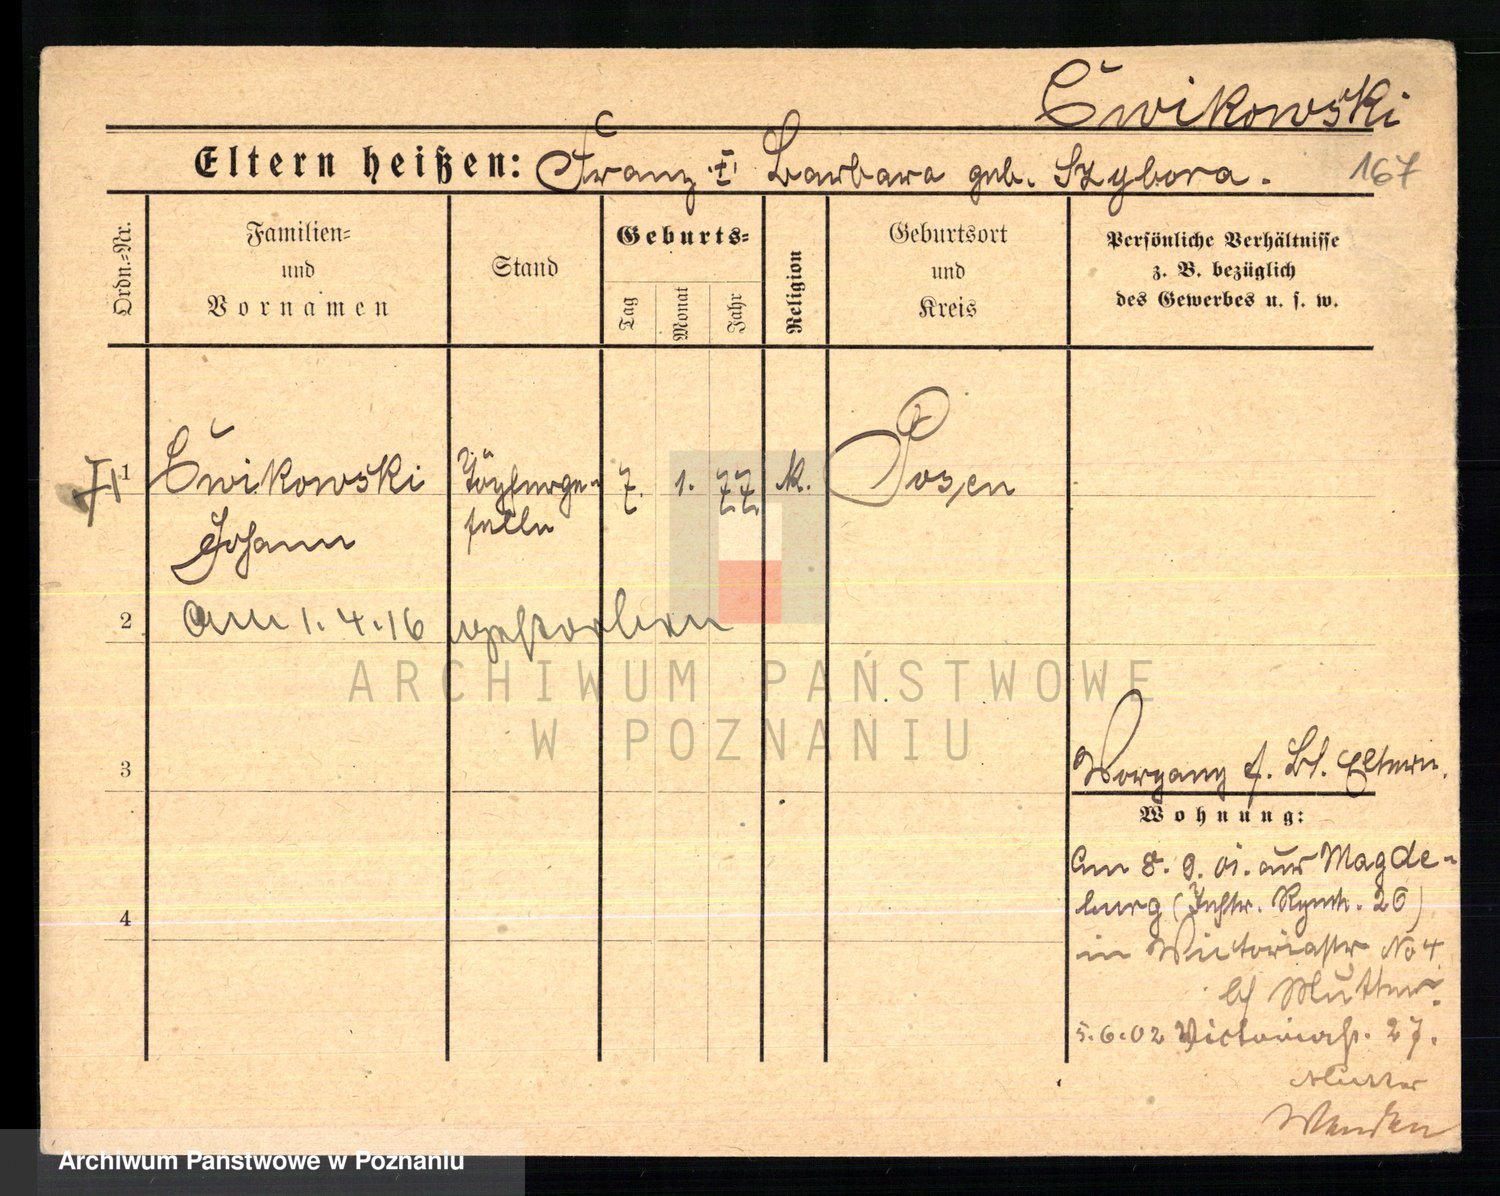 Ćwikowski
Eltern heißen: Franz † Barbara geb. Szybora.
167
Ordn.=Nr.
Familien=
und
Vornamen
Stand
Geburts=
Tag
Monat
Jahr
Religion
Geburtsort
und
Kreis
Persönliche Verhältnisse
z. B. bezüglich
des Gewerbes u. s. w.
1 Ćwikowski Töpferge- 7. 1. 77. k. Posen
Johann selle
2 Am 1. 4. 16 gestorben
3
Vorgang s. Bl. Eltern.
Wohnung:
Am 8. 9. 01. aus Magde-
burg (Inftr. Rgmt. 26)
4
in Victoriastr No 4
bei Mutter.
5.6.02 Victoriastr. 27.
Mutter
Wenden
ARCHIWUM PAŃSTWOWE
W POZNANIU
Archiwum Państwowe w Poznaniu